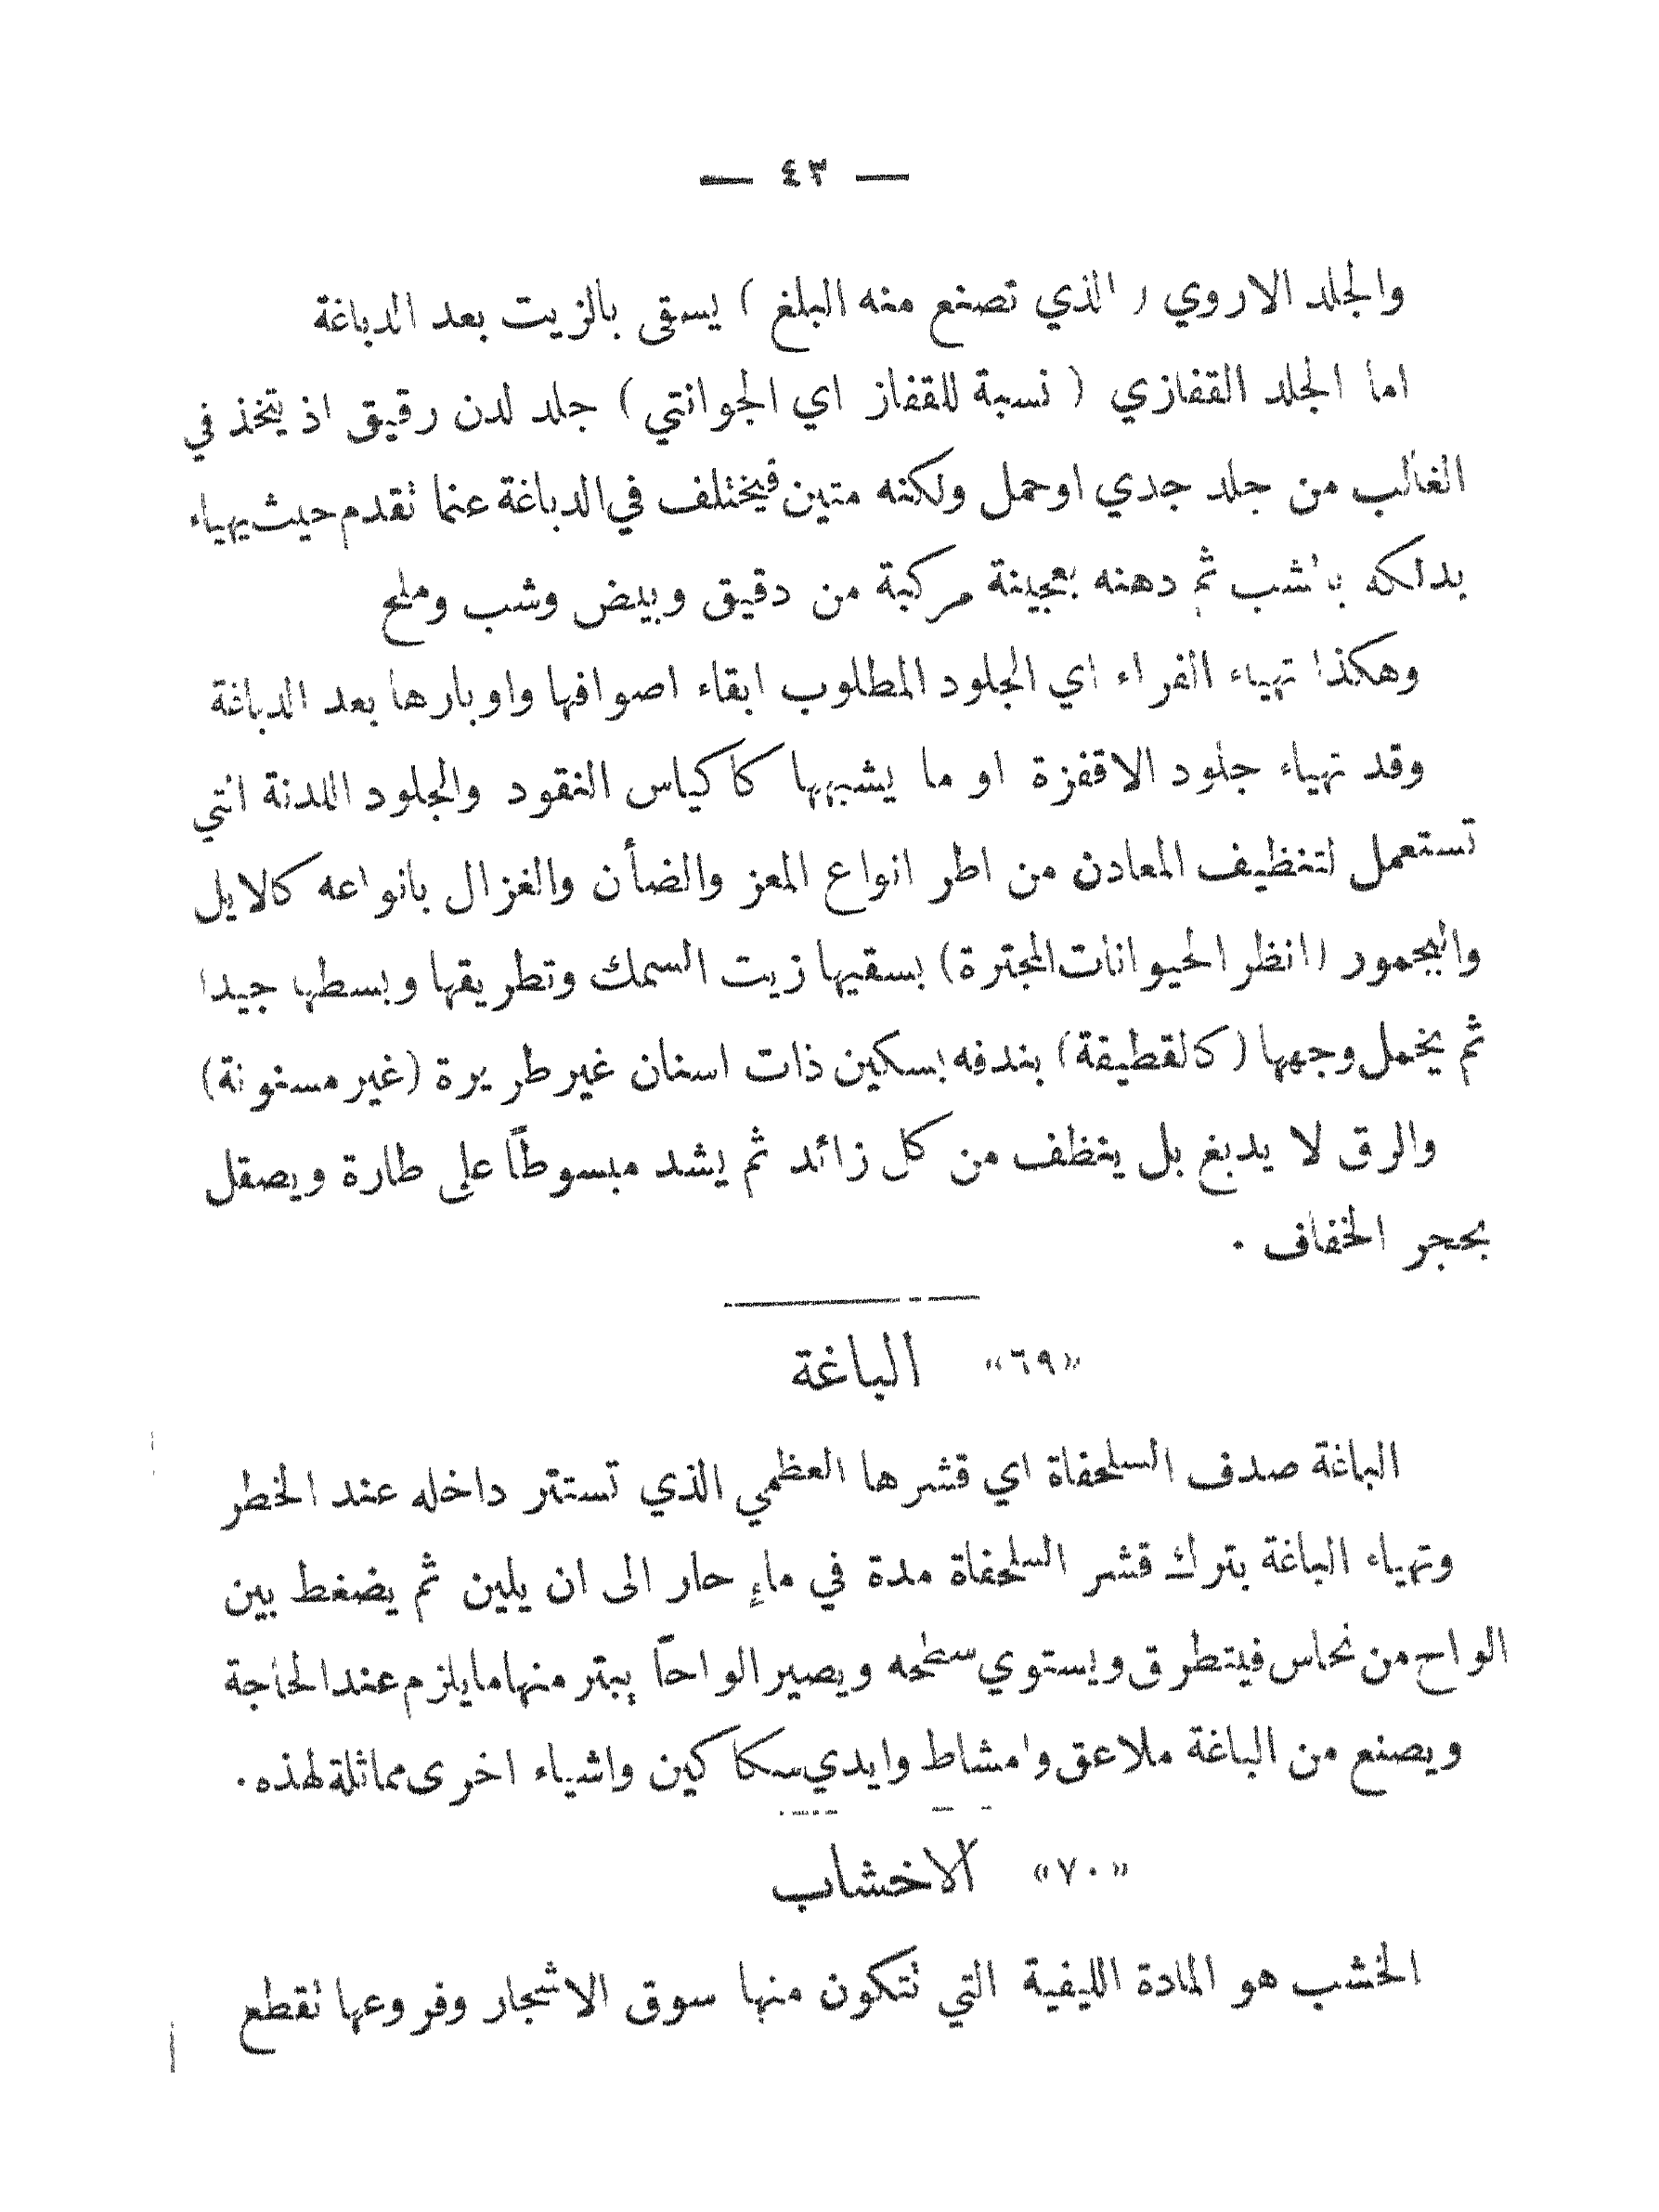 — ٤٣ —
والجلد الاروي ( الذي تصنع منه البلغ ) يسقى بالزيت بعد الدباغة
اما الجلد القفازي ( نسبة للقفاز اي الجوانتي ) جلد لدن رقيق اذ يتخذ في
الغالب من جلد جدي اوحمل ولكنه متين فيختلف في الدباغة عنما تقدم حيث يهياء
بدلكه بالشب ثم دهنه بعجينة مركبة من دقيق وبيض وشب وملح
وهكذا تهياء الفراء اي الجلود المطلوب ابقاء اصوافها واوبارها بعد الدباغة
وقد تهياء جلود الاقفزة او ما يشبهها كاكياس النقود والجلود اللدنة التي
تستعمل لتنظيف المعادن من اطر انواع المعز والضأن والغزال بانواعه كالايل
واليحمور (انظر الحيوانات المجترة) بسقيها زيت السمك وتطريقها وبسطها جيدا
ثم يخمل وجهها (كالقطيفة) بندفه بسكين ذات اسنان غير طريرة (غير مسنونة)
والرق لا يدبغ بل ينظف من كل زائد ثم يشد مبسوطاً على طارة ويصقل
بحجر الخفاف .
«٦٩» الباغة
الباغة صدف السلحفاة اي قشرها العظمي الذي تستتر داخله عند الخطر
وتهياء الباغة بترك قشر السلحفاة مدة في ماءٍ حار الى ان يلين ثم يضغط بين
الواح من نحاس فيتطرق ويستوي سطحه ويصير الواحاً يبتر منها ما يلزم عند الحاجة
ويصنع من الباغة ملاعق وامشاط وايدي سكاكين واشياء اخرى مماثلة لهذه .
«٧٠» الاخشاب
الخشب هو المادة الليفية التي تتكون منها سوق الاشجار وفروعها تقطع